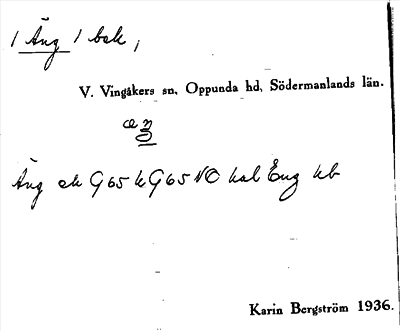 1 Äng 1 bak,
V. Vingåkers sn, Oppunda hd, Södermanlands län.
Äng ek G65 k G65 NO kal Äng kb
Karin Bergström 1936.